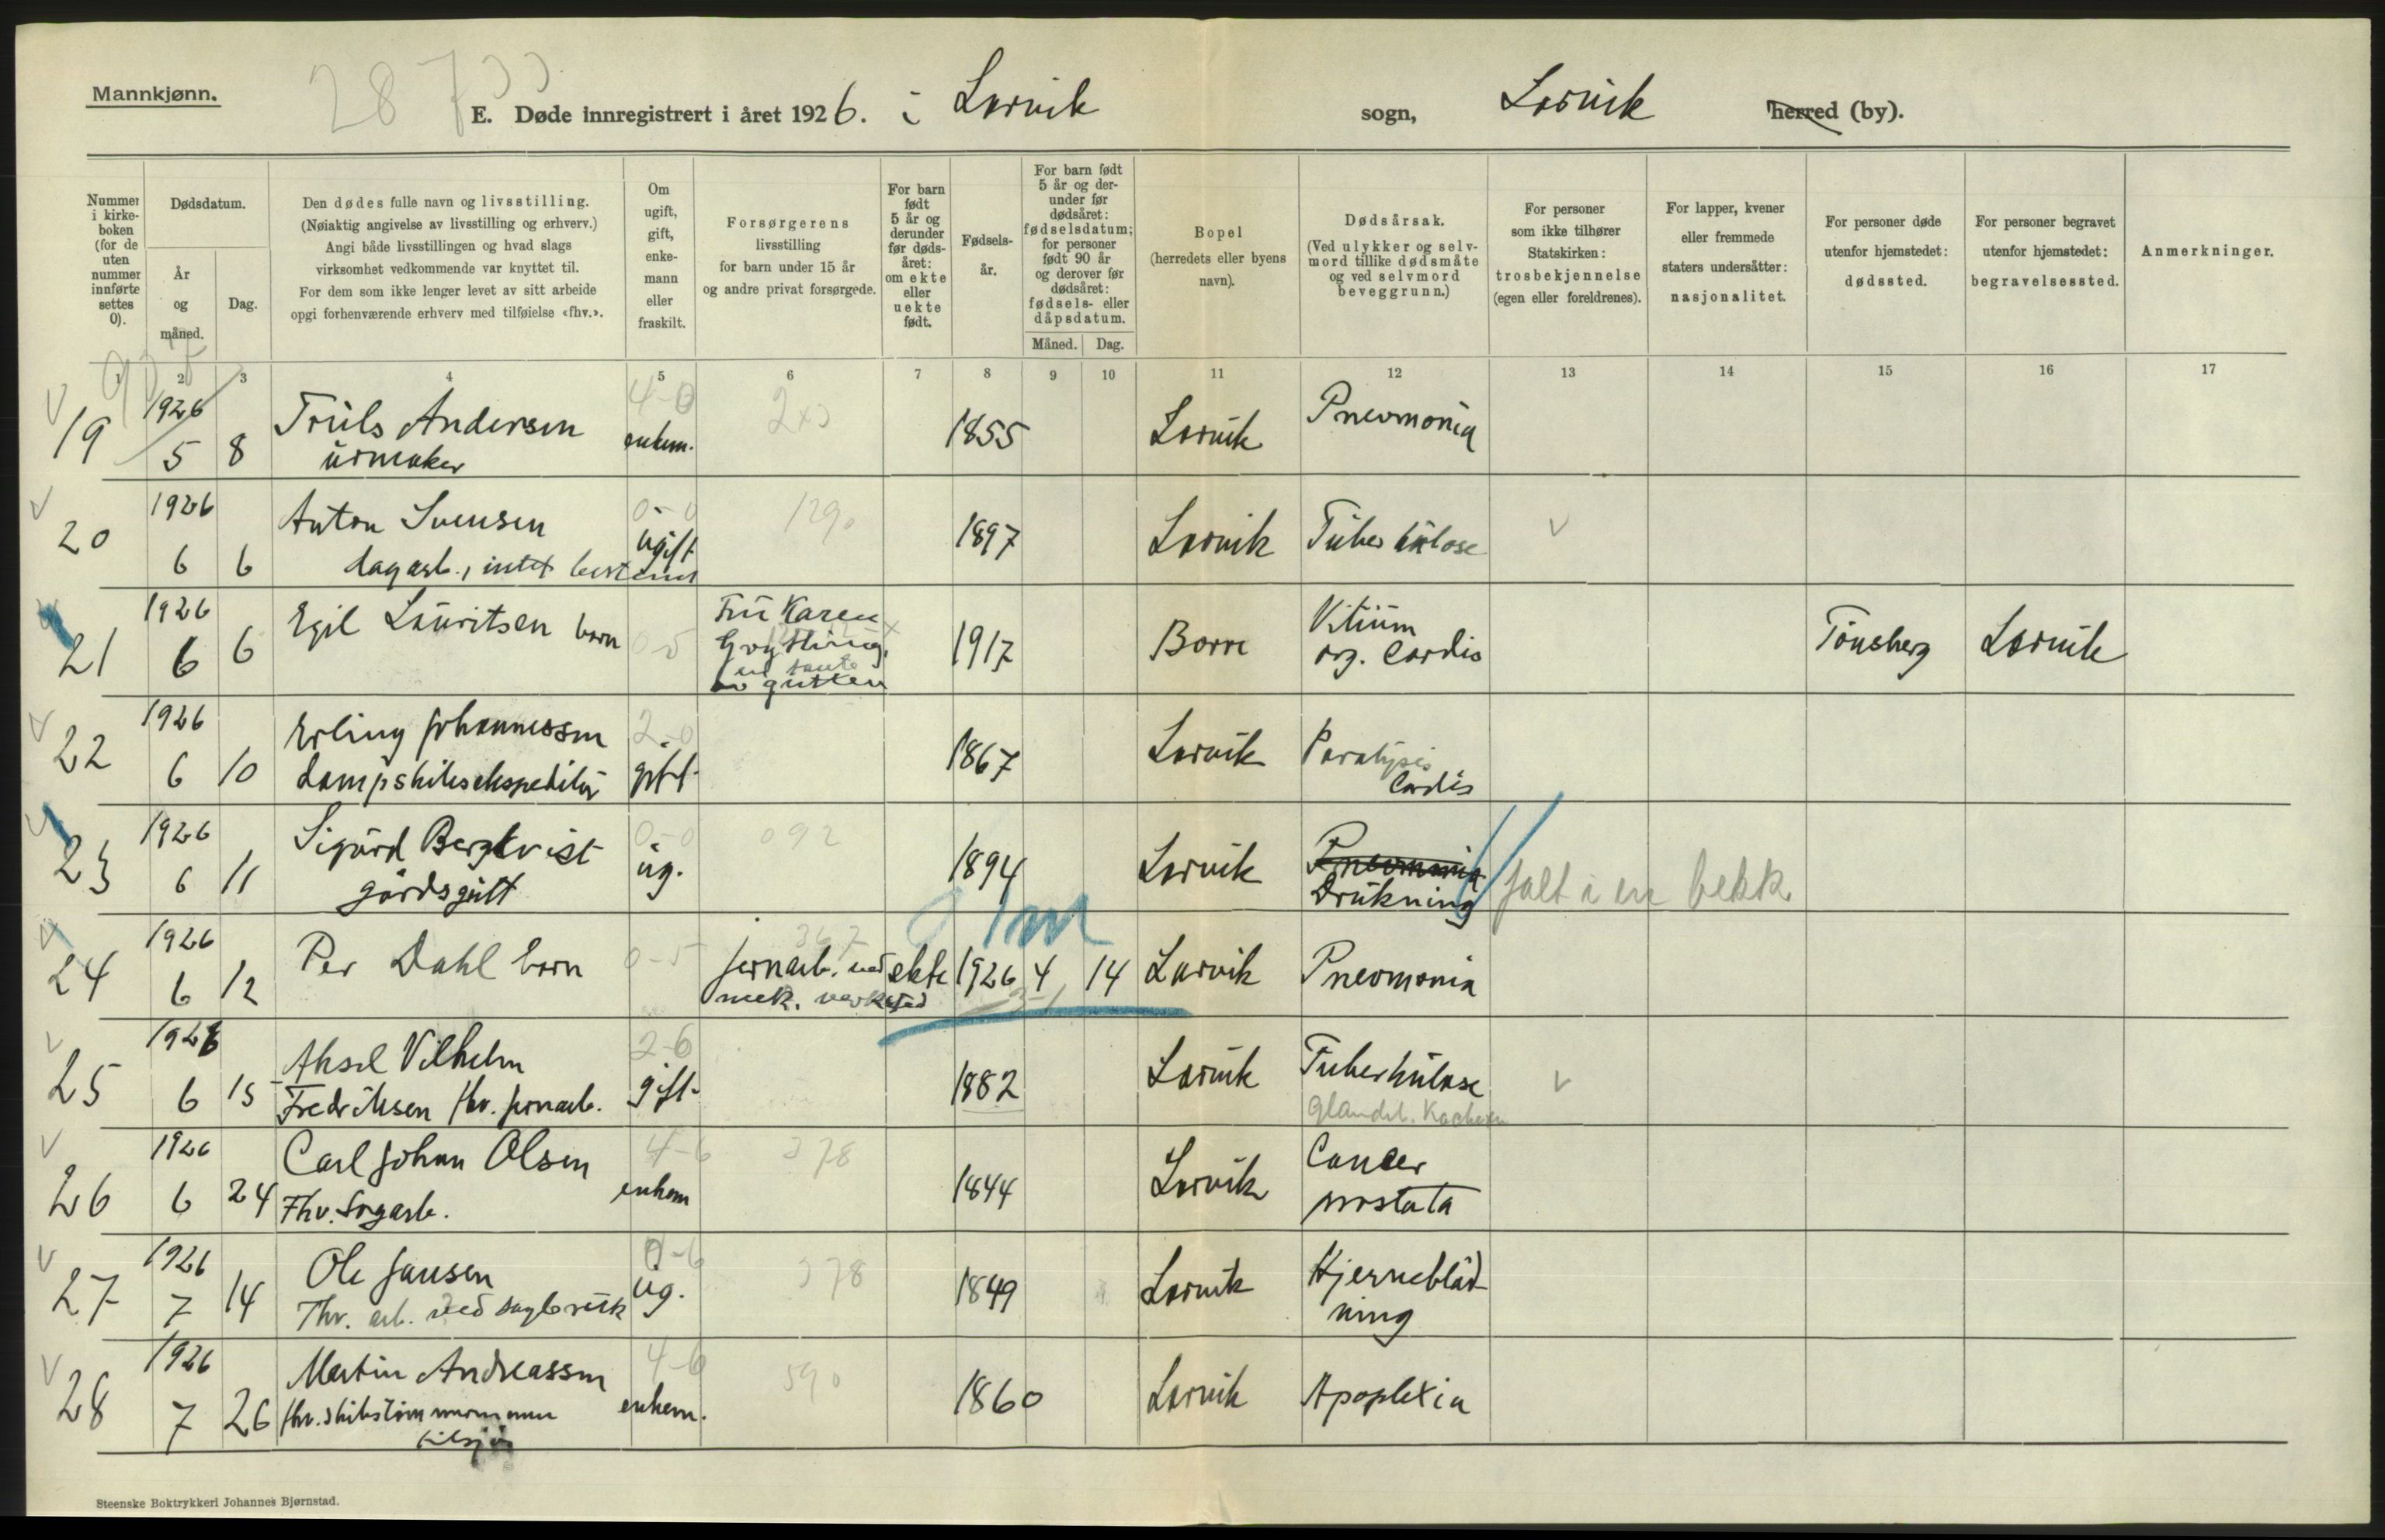 Mannkjønn.
E. Døde innregistrert i året 1926. i Larvik sogn, Larvik herred (by).
Nummer i kirke-boken (for de uten nummer innførte settes 0).
Dødsdatum.
År og måned.
Dag.
Den dødes fulle navn og livsstilling.
(Nøiaktig angivelse av livsstilling og erhverv.)
Angi både livsstillingen og hvad slags
virksomhet vedkommende var knyttet til.
For dem som ikke lenger levet av sitt arbeide
opgi forhenværende erhverv med tilføielse «fhv.».
Om ugift, gift, enke-mann eller fraskilt.
Forsørgerens
livsstilling
for barn under 15 år
og andre privat forsørgede.
For barn født 5 år og derunder før døds-året: om ekte eller uekte født.
Fødsels-år.
For barn født 5 år og der-under før dødsåret: fødselsdatum; for personer født 90 år og derover før dødsåret: fødsels- eller dåpsdatum.
Måned.
Dag.
Bopel
(herredets eller byens
navn).
Dødsårsak.
(Ved ulykker og selv-
mord tillike dødsmåte
og ved selvmord
beveggrunn.)
For personer
som ikke tilhører
Statskirken:
trosbekjennelse
(egen eller foreldrenes).
For lapper, kvener
eller fremmede
staters undersåtter:
nasjonalitet.
For personer døde
utenfor hjemstedet:
dødssted.
For personer begravet
utenfor hjemstedet:
begravelsessted.
Anmerkninger.
1 2 3 4 5 6 7 8 9 10 11 12 13 14 15 16 17
19 1926 5 8 Truls Andersen
urmaker
4-0
enkem. 1855 Larvik Pneumonia
20 1926 6 6 Anton Svensen
dagarb., intet bestemt
0-0
ugift 1290 1897 Larvik Tuberkulose
21 1926 6 6 Egil Lauritsen barn
0-5
Fru Karen
av gutten
1917 Borre Vitium
org. Cordis
Tønsberg Larvik
22 1926 6 10 Erling Johannessen
Dampskibsekspeditør
2-0
gift 1867 Larvik Paralysis
Cordis
23 1926 6 11 Sigurd Bergkvist
gårdsgutt
0-0
ug. 092 1894 Larvik Pneumonia
Drukning falt i en bekk
24 1926 6 12 Per Dahl barn
0-5 367
jernarb. ved
mek. verksted
ekte 1926 4 14 Larvik Pneumonia
25 1926 6 15 Aksel Vilhelm
Fredriksen fhv. jernarb.
2-6
gift 1882 Larvik Tuberkulose
26 1926 6 24 Carl Johan Olsen
Fhv. sagarb.
4-6
enkem 378 1844 Larvik Cancer
prostata
27 1926 7 14 Ole Jansen
Fhv. arb. ved sagbruk
0-6
ug. 378 1849 Larvik Hjerneblød-
ning
28 1926 7 26 Martin Andreassen
fhv. skibstømmermann
tilsjøs
4-6
enkem. 590 1860 Larvik Apoplexia
Steenske Boktrykkeri Johannes Bjørnstad.